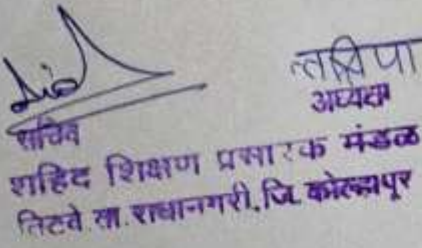 सचिव
अध्यक्ष
शहिद शिक्षण प्रसारक मंडळ
तिटवे ता. राधानगरी, जि. कोल्हापूर